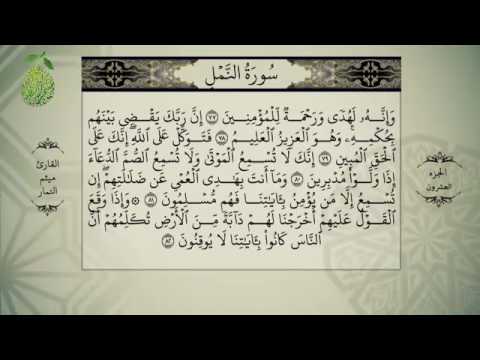 سُورَةُ النَّمْلِ
وَإِنَّهُۥ لَهُدًى وَرَحْمَةٌ لِّلْمُؤْمِنِينَ ٧٧ إِنَّ رَبَّكَ يَقْضِى بَيْنَهُم
بِحُكْمِهِۦ وَهُوَ ٱلْعَزِيزُ ٱلْعَلِيمُ ٧٨ فَتَوَكَّلْ عَلَى ٱللَّهِ إِنَّكَ عَلَى
ٱلْحَقِّ ٱلْمُبِينِ ٧٩ إِنَّكَ لَا تُسْمِعُ ٱلْمَوْتَىٰ وَلَا تُسْمِعُ ٱلصُّمَّ ٱلدُّعَآءَ
إِذَا وَلَّوْا۟ مُدْبِرِينَ ٨٠ وَمَآ أَنتَ بِهَـٰدِى ٱلْعُمْىِ عَن ضَلَـٰلَتِهِمْ إِن
تُسْمِعُ إِلَّا مَن يُؤْمِنُ بِـَٔايَـٰتِنَا فَهُم مُّسْلِمُونَ ٨١ ۞ وَإِذَا وَقَعَ
ٱلْقَوْلُ عَلَيْهِمْ أَخْرَجْنَا لَهُمْ دَآبَّةً مِّنَ ٱلْأَرْضِ تُكَلِّمُهُمْ أَنَّ
ٱلنَّاسَ كَانُوا۟ بِـَٔايَـٰتِنَا لَا يُوقِنُونَ ٨٢
الجزء
العشرون
القارئ
ميثم
التمار